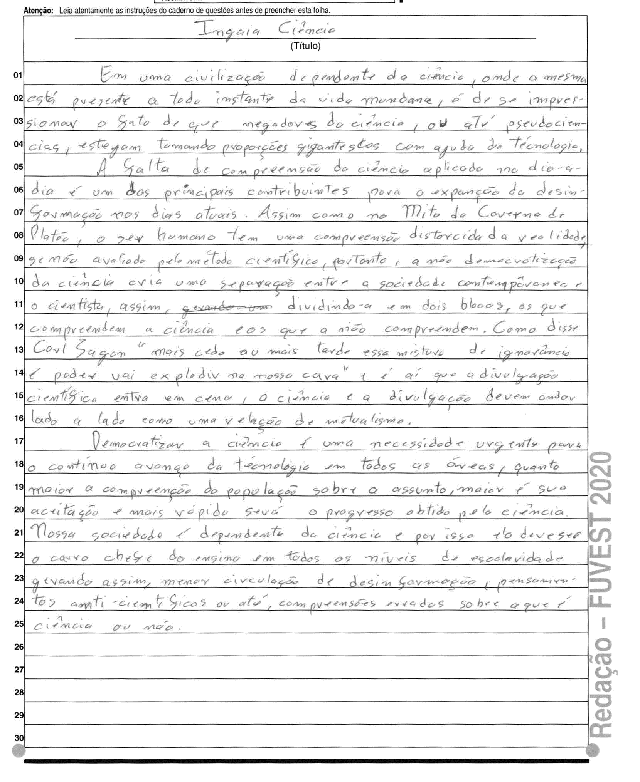 Atenção: Leia atentamente as instruções do caderno de questões antes de preencher esta folha.
Ingaia Ciência
(Título)
01 Em uma civilização dependente da ciência, onde a mesma
02 está presente a todo instante da vida mundana, é de se impres-
03 sionar o fato de que negadores da ciência, ou até pseudocien-
04 cias, estejam tomando proporções gigantescas com ajuda da técnologia.
05 A falta de compreensão da ciência aplicada no dia-a-
06 dia é um dos principais contribuintes para a expanção da desin-
07 formação nos dias atuais. Assim como no Mito da Caverna de
08 Platão, o ser humano tem uma compreensão distorcida da realidade,
09 se não avaliado pelo método científico, portanto, a não democratização
10 da ciência cria uma separação entre a sociedade contemporânea e
11 o cientista, assim, gerando um dividindo-a em dois blocos, os que
12 compreendem a ciência e os que a não compreendem. Como disse
13 Carl Sagan "mais cedo ou mais tarde essa mistura de ignorância
14 e poder vai explodir na nossa cara" e é aí que a divulgação
15 científica entra em cena, a ciência e a divulgação devem andar
16 lado a lado como uma relação de mutualismo.
17 Democratizar a ciência é uma necessidade urgente para
18 o contínuo avanço da técnologia em todas as áreas, quanto
19 maior a compreenção da população sobre o assunto, maior é sua
20 aceitação e mais rápido será o progresso obtido pela ciência.
21 Nossa sociedade é dependente da ciência e por isso ela deve ser
22 o carro chefe do ensino em todos os níveis de escolaridade
23 gerando assim, menor circulação de desinformação, pensamen-
24 tos anti-científicos ou até, compreensões erradas sobre o que é
25 ciência ou não.
26
27
28
29
30
Redação – FUVEST 2020